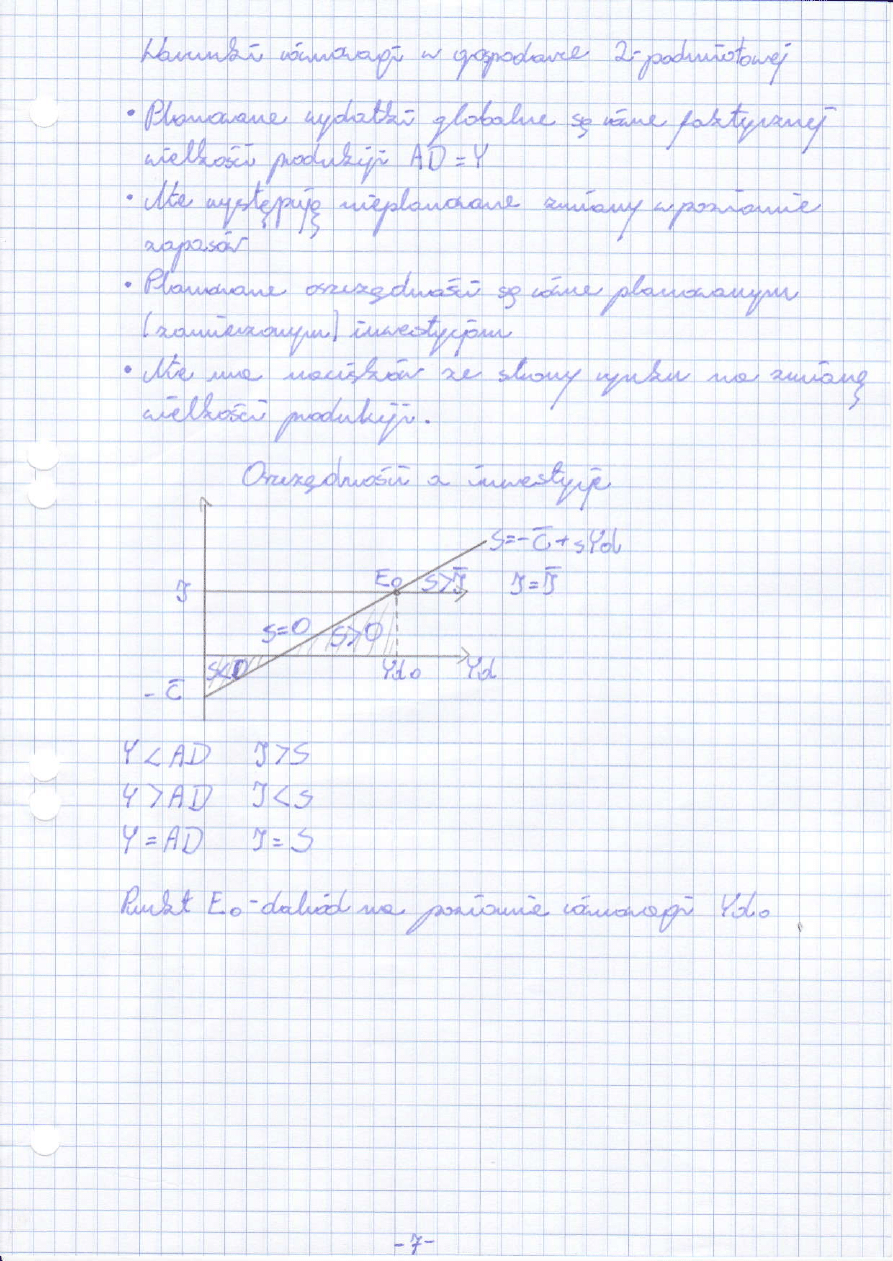 Warunki równowagi w gospodarce 2-podmiotowej
• Planowane wydatki globalne są równe faktycznej
wielkości produkcji AD = Y
• Nie występują nieplanowane zmiany w poziomie
zapasów
• Planowane oszczędności są równe planowanym
(zamierzonym) inwestycjom
• Nie ma nacisków ze strony rynku na zmianę
wielkości produkcji.
Oszczędności a inwestycje
S=-C̄+sYd
J E₀ S>J̄ J=J̄
S=0 S>0
S<0 Yd₀ Yd
- C̄
Y < AD J > S
Y > AD J < S
Y = AD J = S
Punkt E₀ - dochód na poziomie równowagi Yd₀
-7-